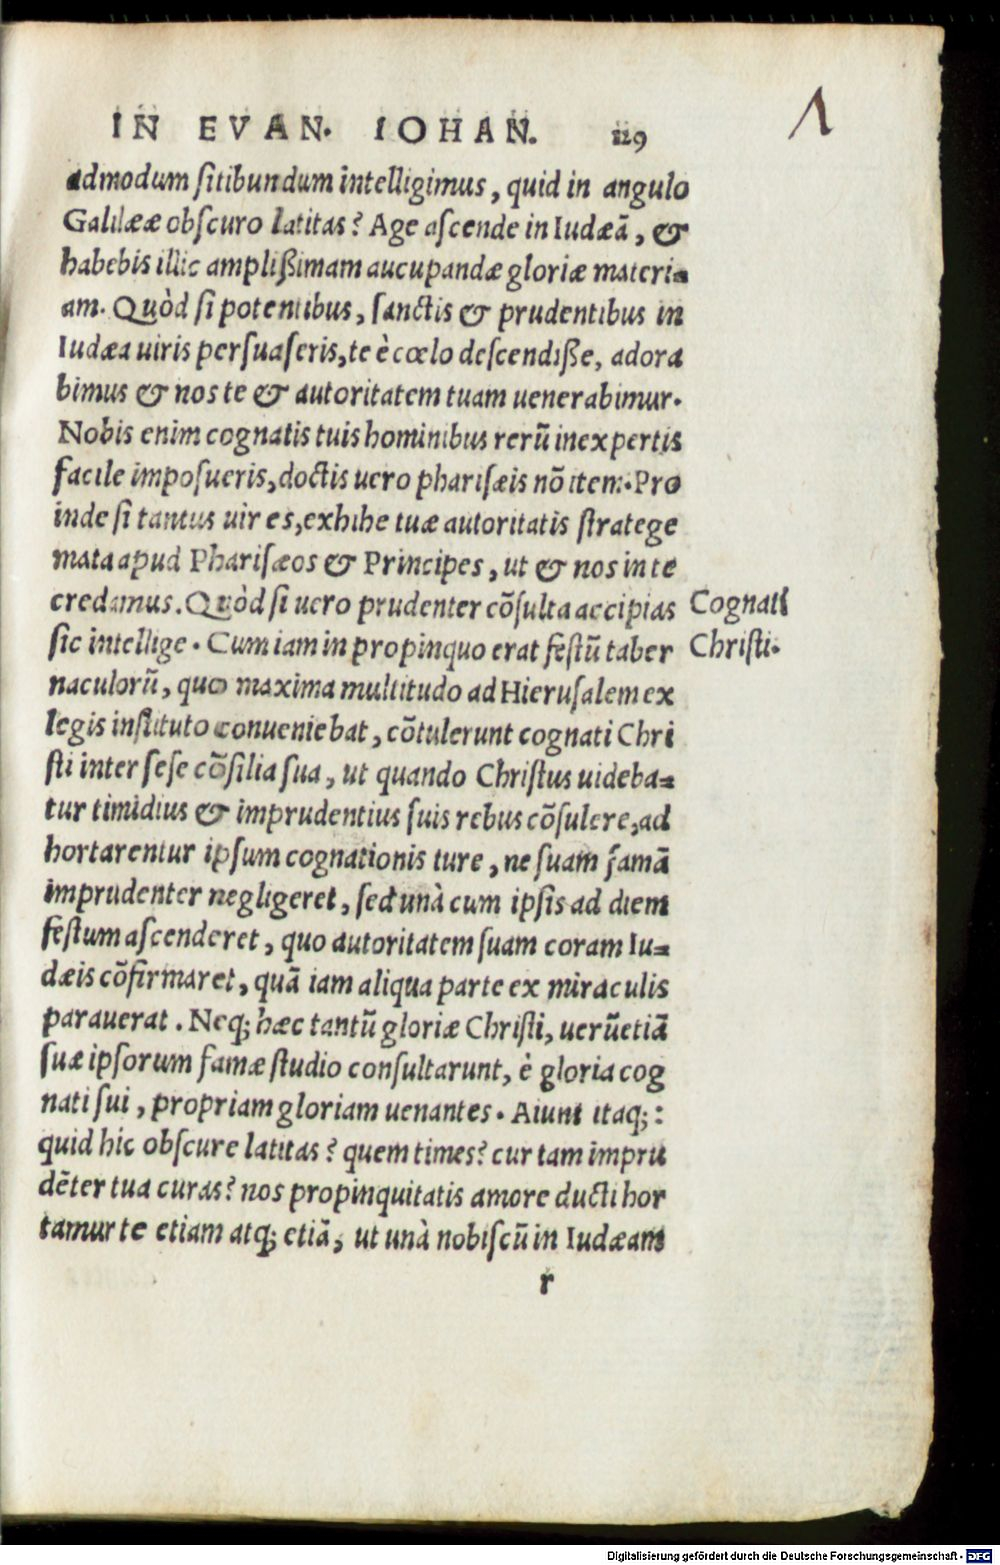 IN EVAN. IOHAN. 129
admodum ſitibundum intelligimus, quid in angulo
Galilææ obſcuro latitas? Age aſcende in Iudæã, &
habebis illic amplißimam aucupandæ gloriæ materi-
am. Quòd ſi potentibus, ſanctis & prudentibus in
Iudæa uiris perſuaſeris, te è cœlo deſcendiße, adora
bimus & nos te & autoritatem tuam uenerabimur.
Nobis enim cognatis tuis hominibus rerũ inexpertis
facile impoſueris, doctis uero phariſæis nõ item. Pro
inde ſi tantus uir es, exhibe tuæ autoritatis ſtratege
mata apud Phariſæos & Principes, ut & nos in te
credamus. Quòd ſi uero prudenter cõſulta accipias
ſic intellige. Cum iam in propinquo erat feſtũ taber
naculorũ, quo maxima multitudo ad Hieruſalem ex
legis inſtituto conueniebat, cõtulerunt cognati Chri
ſti inter ſeſe cõſilia ſua, ut quando Chriſtus uideba-
tur timidius & imprudentius ſuis rebus cõſulere, ad
hortarentur ipſum cognationis iure, ne ſuam famã
imprudenter negligeret, ſed unà cum ipſis ad diem
feſtum aſcenderet, quo autoritatem ſuam coram Iu-
dæis cõfirmaret, quã iam aliqua parte ex miraculis
parauerat. Neq; hæc tantũ gloriæ Chriſti, uerũetiã
ſuæ ipſorum famæ ſtudio conſultarunt, è gloria cog
nati ſui, propriam gloriam uenantes. Aiunt itaq;:
quid hic obſcure latitas? quem times? cur tam impru
dẽter tua curas? nos propinquitatis amore ducti hor
tamur te etiam atq; etiã, ut unà nobiſcũ in Iudæam
r
Cognati
Chriſti.
Digitalisierung gefördert durch die Deutsche Forschungsgemeinschaft - DFG